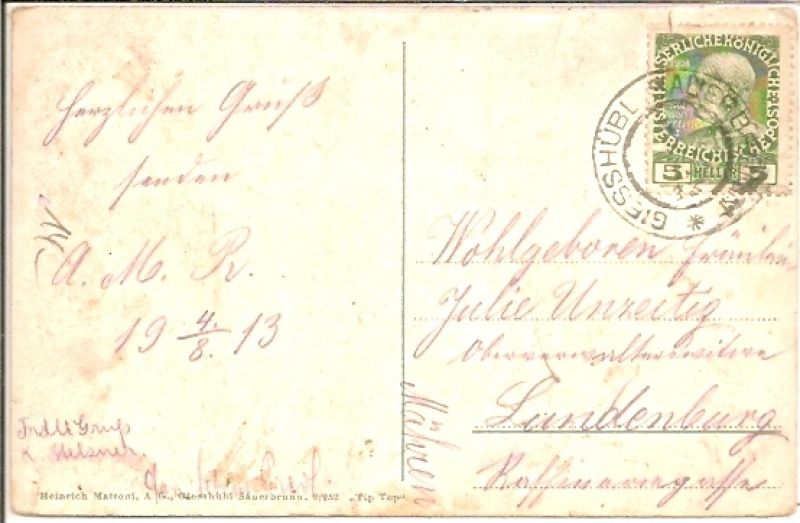 Herzlichen Gruß
senden
A. M. R.
19 4/8. 13
14
Frdl Gruß
Heinrich Mattoni, A. G., Giesshübl Sauerbrunn. 9/252 „Tip Top“
KAISERLICHE KÖNIGLICHE
ÖSTERREICHISCHE POST
5 HELLER 5
GIESSHÜBL SAUERBRUNN
Wohlgeboren Fräulein
Julie Unzeitig
Oberverwalterswitwe
Lundenburg
Raffineriegasse
Mähren